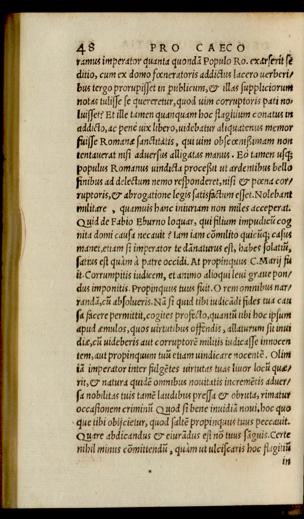 48 PRO CAECO
ramus imperator quanta quondā Populo Ro. exarserit sē
ditio, cum ex domo fœneratoris addictus lacero uerberi/
bus tergo prorupisset in publicum, & illas suppliciorum
notas tulisse se quereretur, quod uim corruptoris pati no/
luisset? Et ille tamen quanquam hoc flagitium conatus in
addicto, ac penè uix libero, uidebatur aliquatenus memor
fuisse Romanæ sanctitatis, qui uim obscœnissimam non
tentauerat nisi aduersus alligatas manus. Eò tamen usq;
populus Romanus uindicta processit ut ardentibus bello
finibus ad delectum nemo responderet, nisi & pœna cor/
ruptoris, & abrogatione legis satisfactum esset. Nolebant
militare, quamuis hanc iniuriam non miles acceperat.
Quid de Fabio Eburno loquar, qui filium impudicū cog
nita domi causa necauit? Iam iam cōmilito quicūq; casus
manet, etiam si imperator te dānaturus est, habes solatiū,
satius est quàm à patre occidi. At propinquus C. Marij fu
it. Corrumpitis iudicem, et animo alioqui leui graue pon/
dus imponitis. Propinquus tuus fuit. O rem omnibus nar/
randā, cū absolueris. Nā si quid tibi iudicādi fides tua cau
sa facere permittit, cogites profectò, quantū tibi hoc ipsum
apud æmulos, quos uirtutibus offēdis, allaturum sit inui
diæ, cū uideberis aut corruptorē militis iudicasse innocen
tem, aut propinquum tuū etiam uindicare nocentē. Olim
iā imperator inter fulgētes uirtutes tuas liuor locū quæ/
rit, & natura quidē omnibus nouitatis incremētis aduer/
sa nobilitas tuis tamē laudibus pressa & obruta, rimatur
occasionem criminū. Quod si bene inuidiā noui, hoc quo
que tibi obijcietur, quod saltē propinquus tuus peccauit.
Quare abdicandus & eiurādus est nō tuus sāguis. Certe
nihil minus cōmittendū, quàm ut ulciscaris hoc flagitiū
in